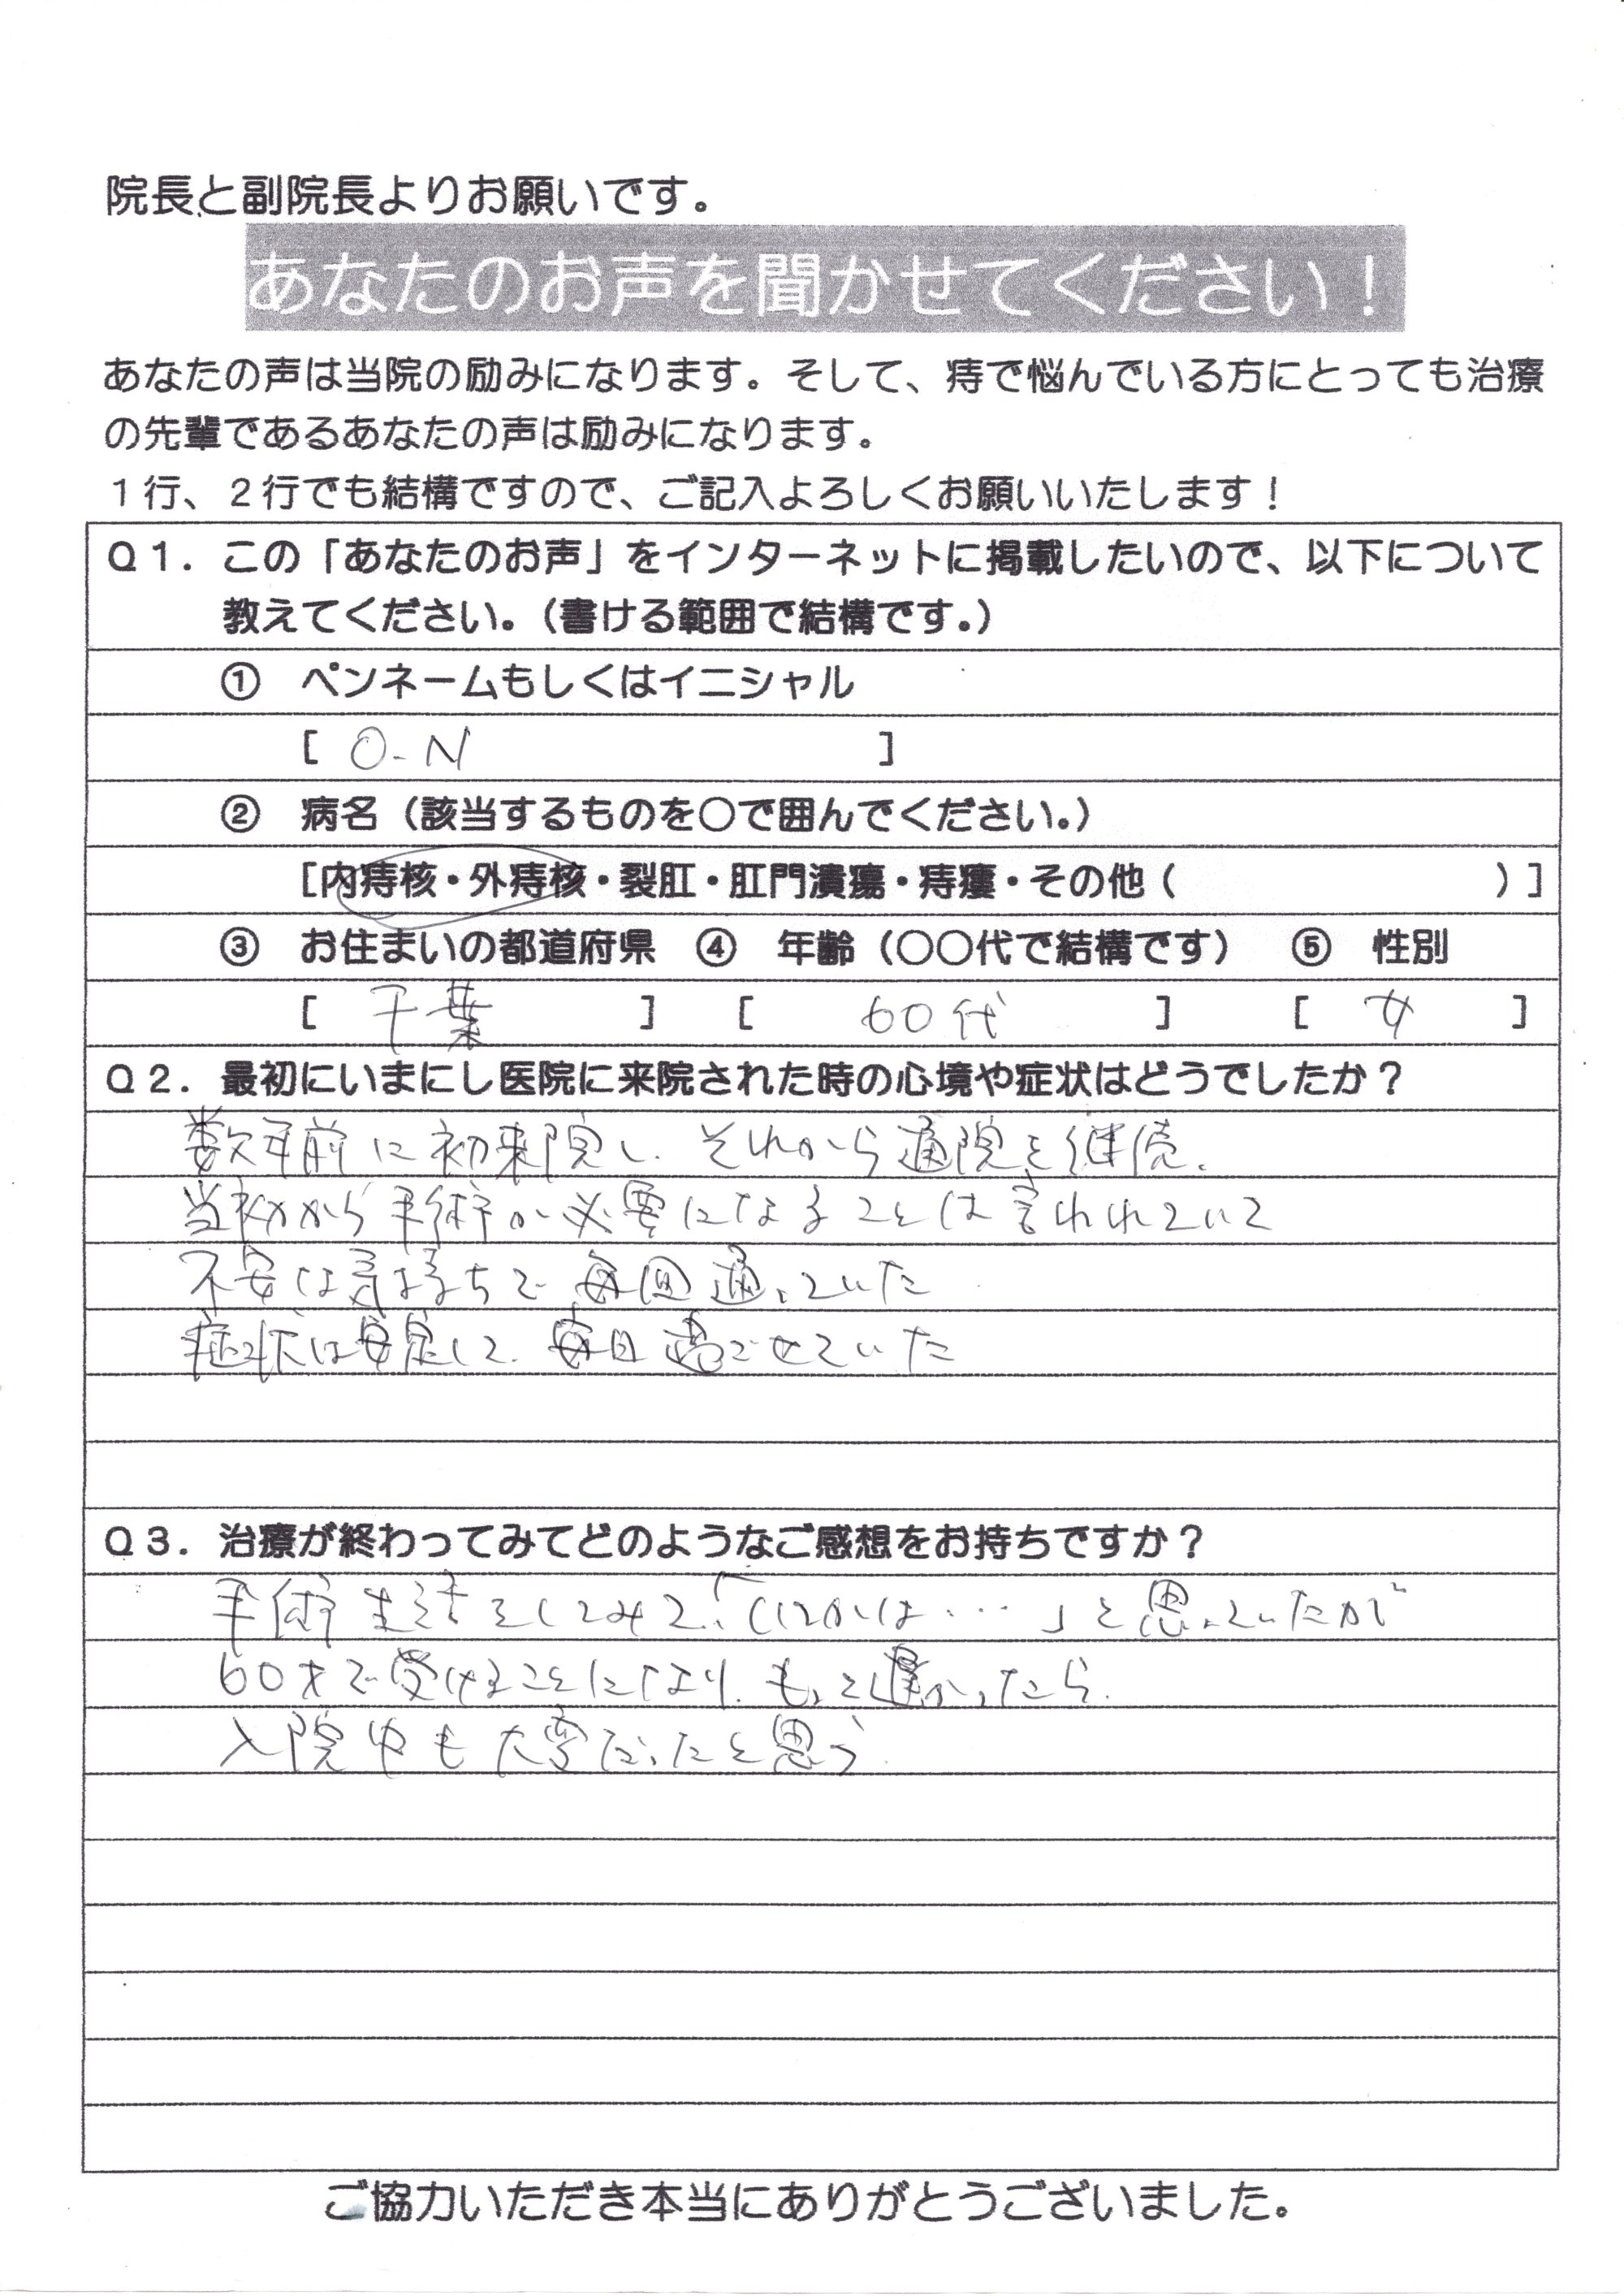 院長と副院長よりお願いです。
あなたのお声を聞かせてください！
あなたの声は当院の励みになります。そして、痔で悩んでいる方にとっても治療
の先輩であるあなたの声は励みになります。
１行、２行でも結構ですので、ご記入よろしくお願いいたします！
Ｑ１．この「あなたのお声」をインターネットに掲載したいので、以下について
教えてください。（書ける範囲で結構です。）
① ペンネームもしくはイニシャル
[ O-N ]
② 病名（該当するものを○で囲んでください。）
[内痔核・外痔核・裂肛・肛門潰瘍・痔瘻・その他（ ）]
③ お住まいの都道府県 ④ 年齢（○○代で結構です） ⑤ 性別
[ 千葉 ] [ 60代 ] [ 女 ]
Ｑ２．最初にいまにし医院に来院された時の心境や症状はどうでしたか？
数年前に初来院し、それから通院を継続。
当初から手術が必要になることは言われていて
不安な気持ちで毎回通っていた
症状は安定して、毎日過ごせていた
Ｑ３．治療が終わってみてどのようなご感想をお持ちですか？
手術生活をしてみて、「いつかは…」と思っていたが
60才で受けることになり、もっと遅かったら、
入院中も大変だったと思う
ご協力いただき本当にありがとうございました。